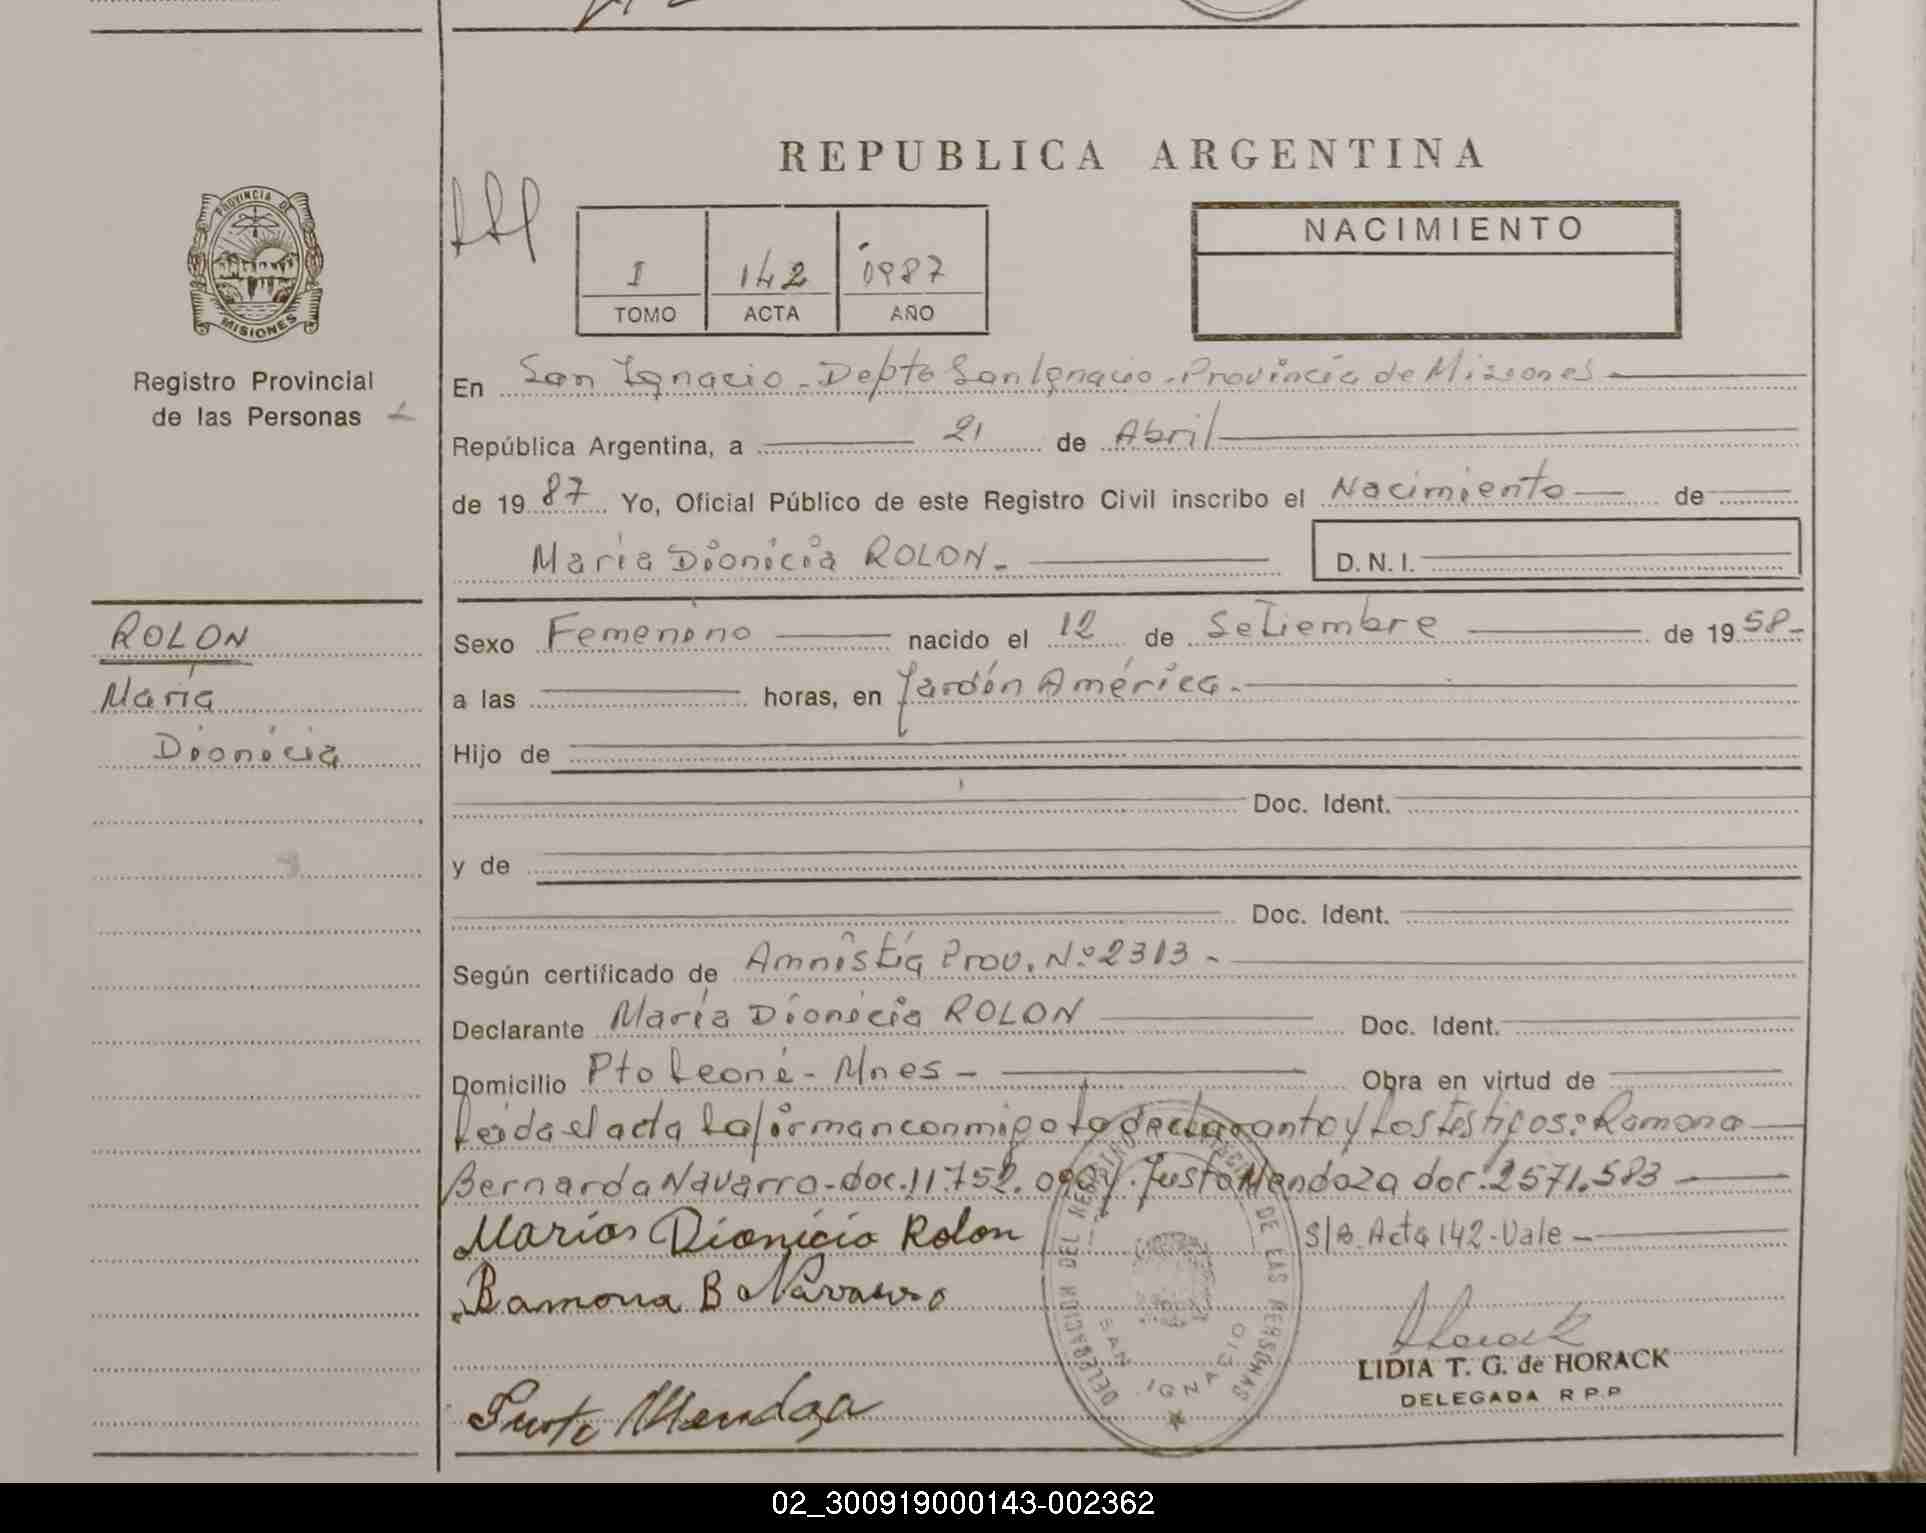 REPUBLICA ARGENTINA
PROVINCIA DE
MISIONES
Registro Provincial
de las Personas
I 142 1987
TOMO ACTA AÑO
NACIMIENTO
En San Ignacio - Depto San Ignacio - Provincia de Misiones
República Argentina, a 21 de Abril
de 1987 Yo, Oficial Público de este Registro Civil inscribo el Nacimiento de
María Dionicia ROLON - D.N.I.
ROLON
María
Dionicia
Sexo Femenino nacido el 12 de Setiembre de 1958-
a las horas, en Jardín América.-
Hijo de
Doc. Ident.
y de
Doc. Ident.
Según certificado de Amnistía Prov. Nº 2313 -
Declarante María Dionicia ROLON Doc. Ident.
Domicilio Pto Leoni - Mnes - Obra en virtud de
Leida el acta la firman conmigo la declarante y los testigos: Ramona
Bernarda Navarro - doc. 11.752. y Justo Mendoza doc. 2571.583
Marias Dionicia Rolon
S/B. Acta 142 - Vale -
Ramona B Navarro
DELEGACION DEL REGISTRO PROVINCIAL DE LAS PERSONAS
SAN IGNACIO
Horack
LIDIA T. G. de HORACK
DELEGADA R.P.P
Justo Mendoza
02_300919000143-002362